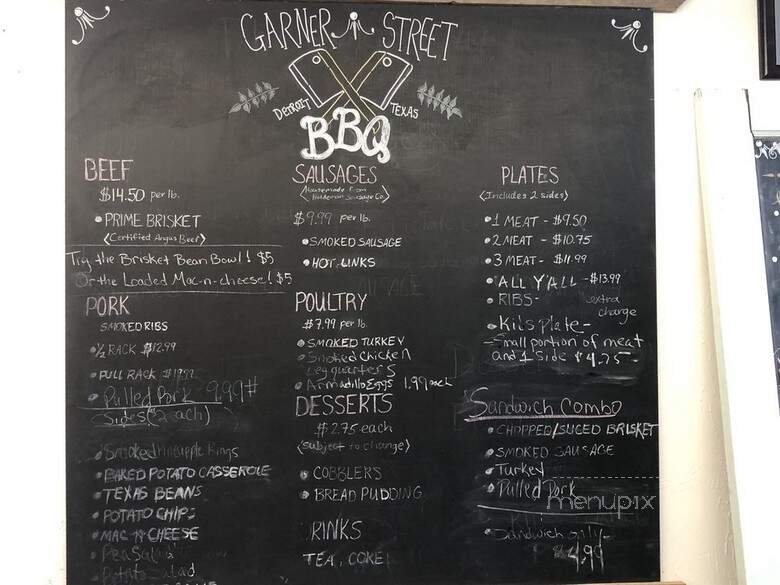 GARNER STREET
DETROIT TEXAS
BBQ
BEEF
$14.50 per lb.
• PRIME BRISKET
<Certified Angus Beef>
Try the Brisket Bean Bowl! $5
Or the Loaded Mac-n-cheese! $5
PORK
SMOKED RIBS
• 1/2 RACK $12.99
• FULL RACK $19.99
• Pulled Pork 9.99#
Sides ($2 each)
• Smoked Pineapple Rings
• BAKED POTATO CASSEROLE
• TEXAS BEANS
• POTATO CHIPS
• MAC N CHEESE
• Pea Salad
• Potato Salad
SAUSAGES
<Housemade from Holdeman Sausage Co.>
$9.99 per lb.
• SMOKED SAUSAGE
• HOT LINKS
POULTRY
$7.99 per lb.
• SMOKED TURKEY
• Smoked Chicken
Leg quarters
• Armadillo Eggs 1.99 each
DESSERTS
$2.75 each
<Subject to change>
• COBBLERS
• BREAD PUDDING
RINKS
TEA, COKE
PLATES
<Includes 2 sides>
• 1 MEAT - $9.50
• 2 MEAT - $10.75
• 3 MEAT - $11.99
• ALL Y'ALL - $13.99
• RIBS - extra
charge
• Kids Plate -
- Small portion of meat
and 1 Side $4.25 -
Sandwich Combo
• CHOPPED/SLICED BRISKET
• SMOKED SAUSAGE
• Turkey
• Pulled Pork
menupix
• Sandwich only -
$4.99